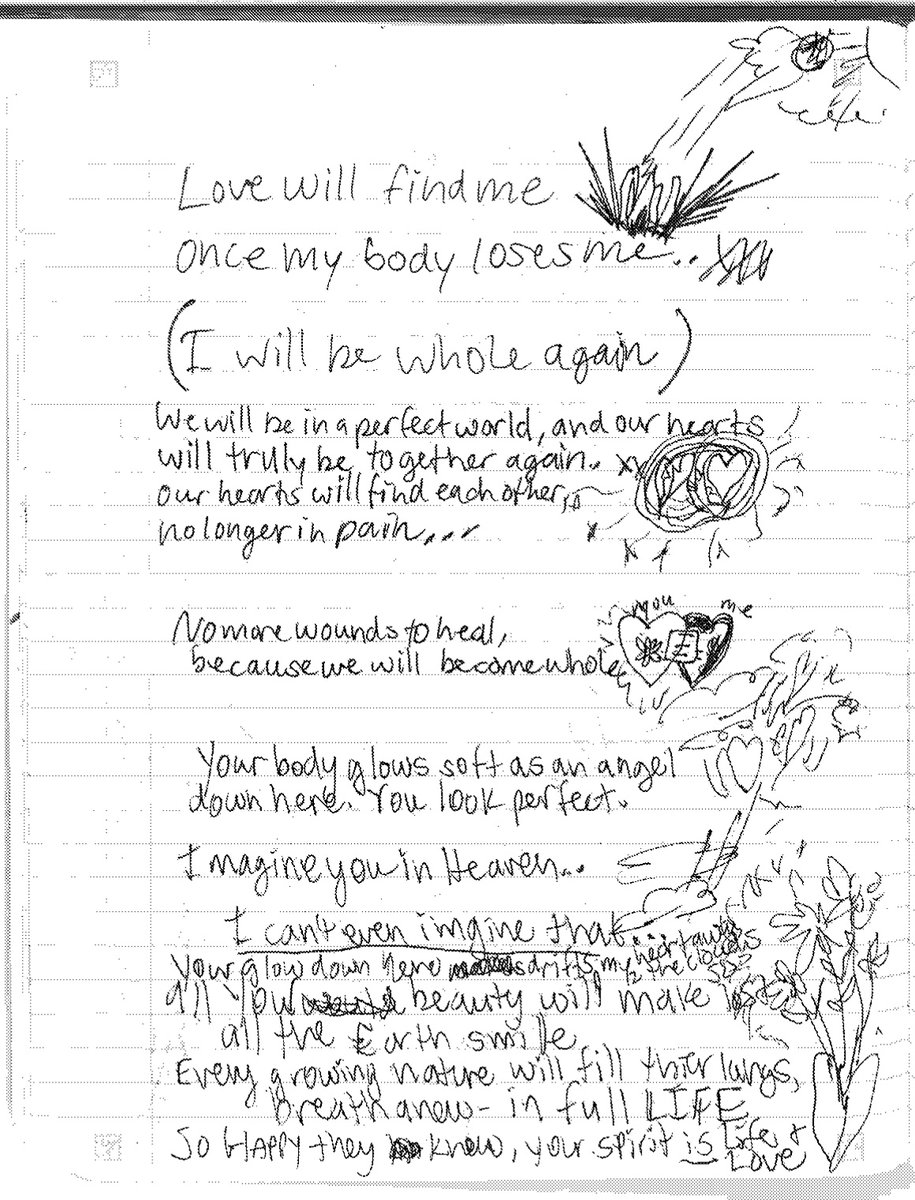 Love will find me
once my body loses me..
(I will be whole again)
We will be in a perfect world, and our hearts
will truly be together again..
our hearts will find each other,
no longer in pain...
you me
No more wounds to heal,
because we will become whole
Your body glows soft as an angel
down here. You look perfect.
I magine you in Heaven...
I can't even imgine that...
Your glow down here drifts my heart away
2 the clouds
all your beauty will make
all the Earth smile
Every growing nature will fill thier lungs,
breath anew - in full LIFE
So HAPPY they know, your spirit is Life +
Love